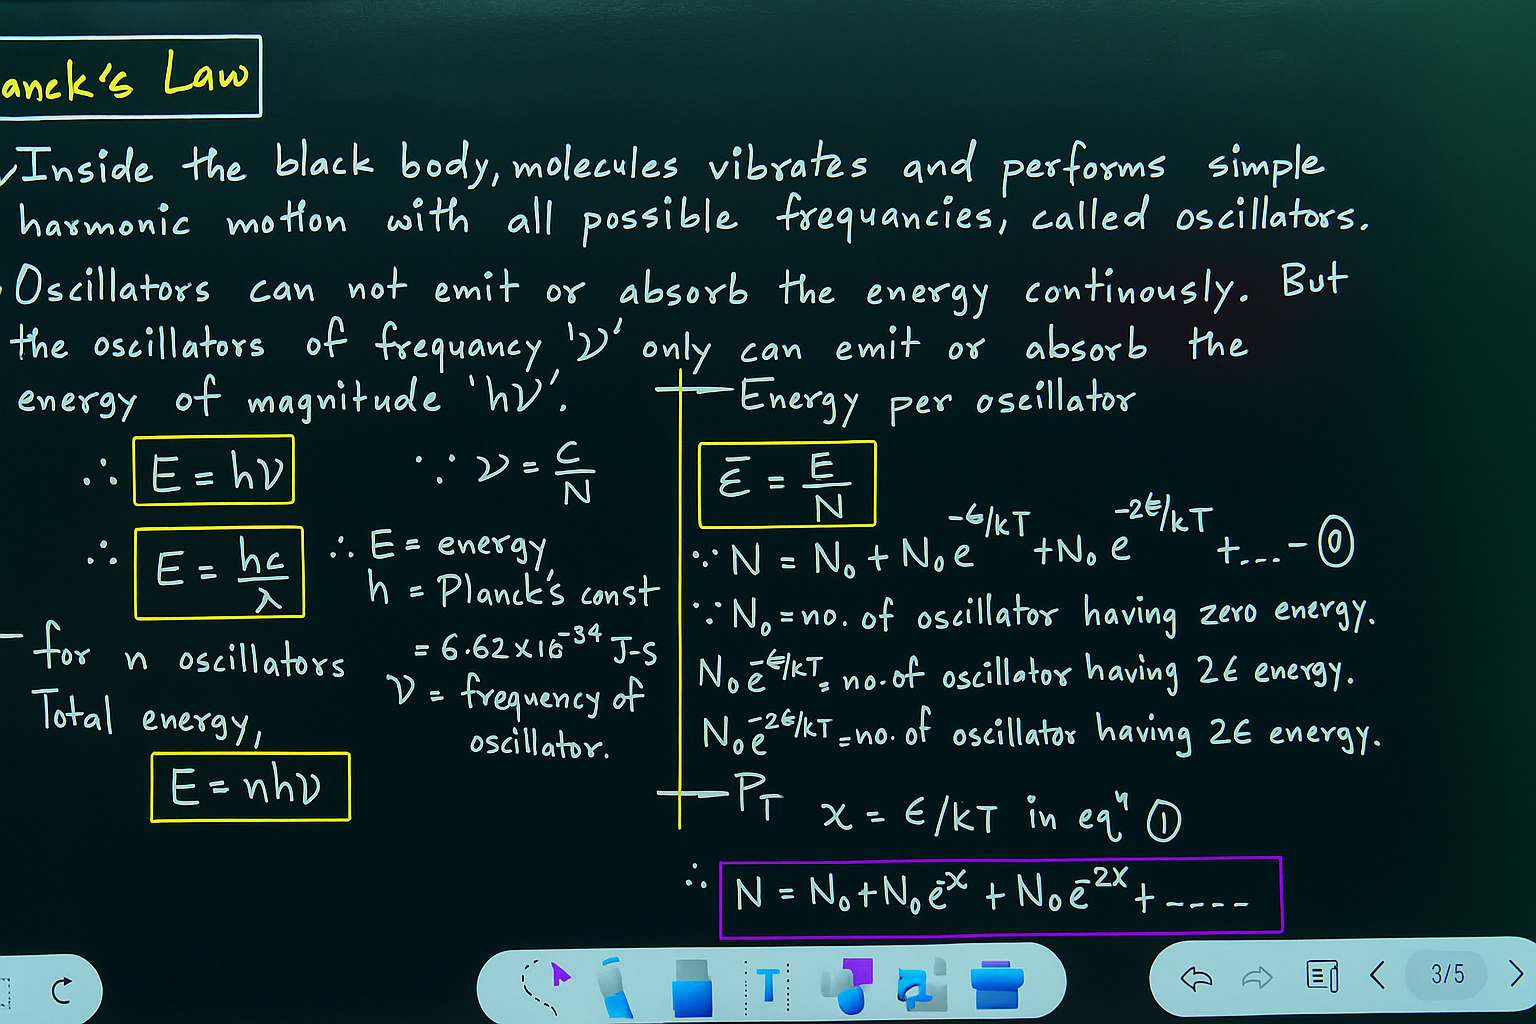 anck's Law
Inside the black body, molecules vibrates and performs simple
harmonic motion with all possible frequancies, called oscillators.
Oscillators can not emit or absorb the energy continously. But
the oscillators of frequancy 'ν' only can emit or absorb the
energy of magnitude 'hν'.
∴ E = hν
∵ ν = c/N
∴ E = hc/λ
∴ E = energy,
h = Planck's const
= 6.62×10⁻³⁴ J-S
ν = frequency of
oscillator.
- for n oscillators
Total energy,
E = nhν
Energy per oscillator
ε̄ = E/N
∵ N = N₀ + N₀e^(-ϵ/kT) + N₀e^(-2ϵ/kT) + ...- ⓪
∵ N₀ = no. of oscillator having zero energy.
N₀e^(-ϵ/kT) = no. of oscillator having 2ϵ energy.
N₀e^(-2ϵ/kT) = no. of oscillator having 2ϵ energy.
P_T x = ϵ/kT in eqⁿ ①
∴ N = N₀ + N₀e^(-x) + N₀e^(-2x) + ----
T
3/5